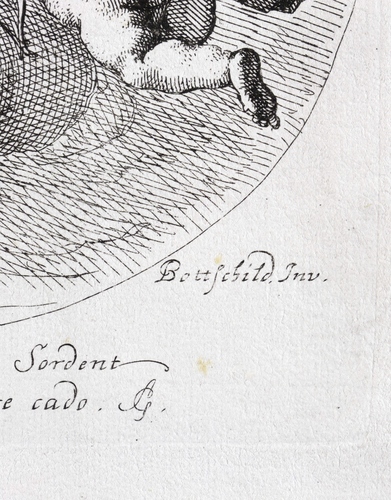 Bottschild. Inv.
Sordent
cado.